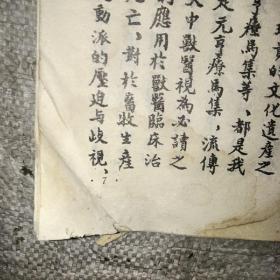 文化遺產之
馬集等、都是我
元亨療馬集，流傳
中獸醫視為必讀之
應用於獸醫臨床治
亡，對於畜牧生產
動派的壓迫与歧視、
·7·